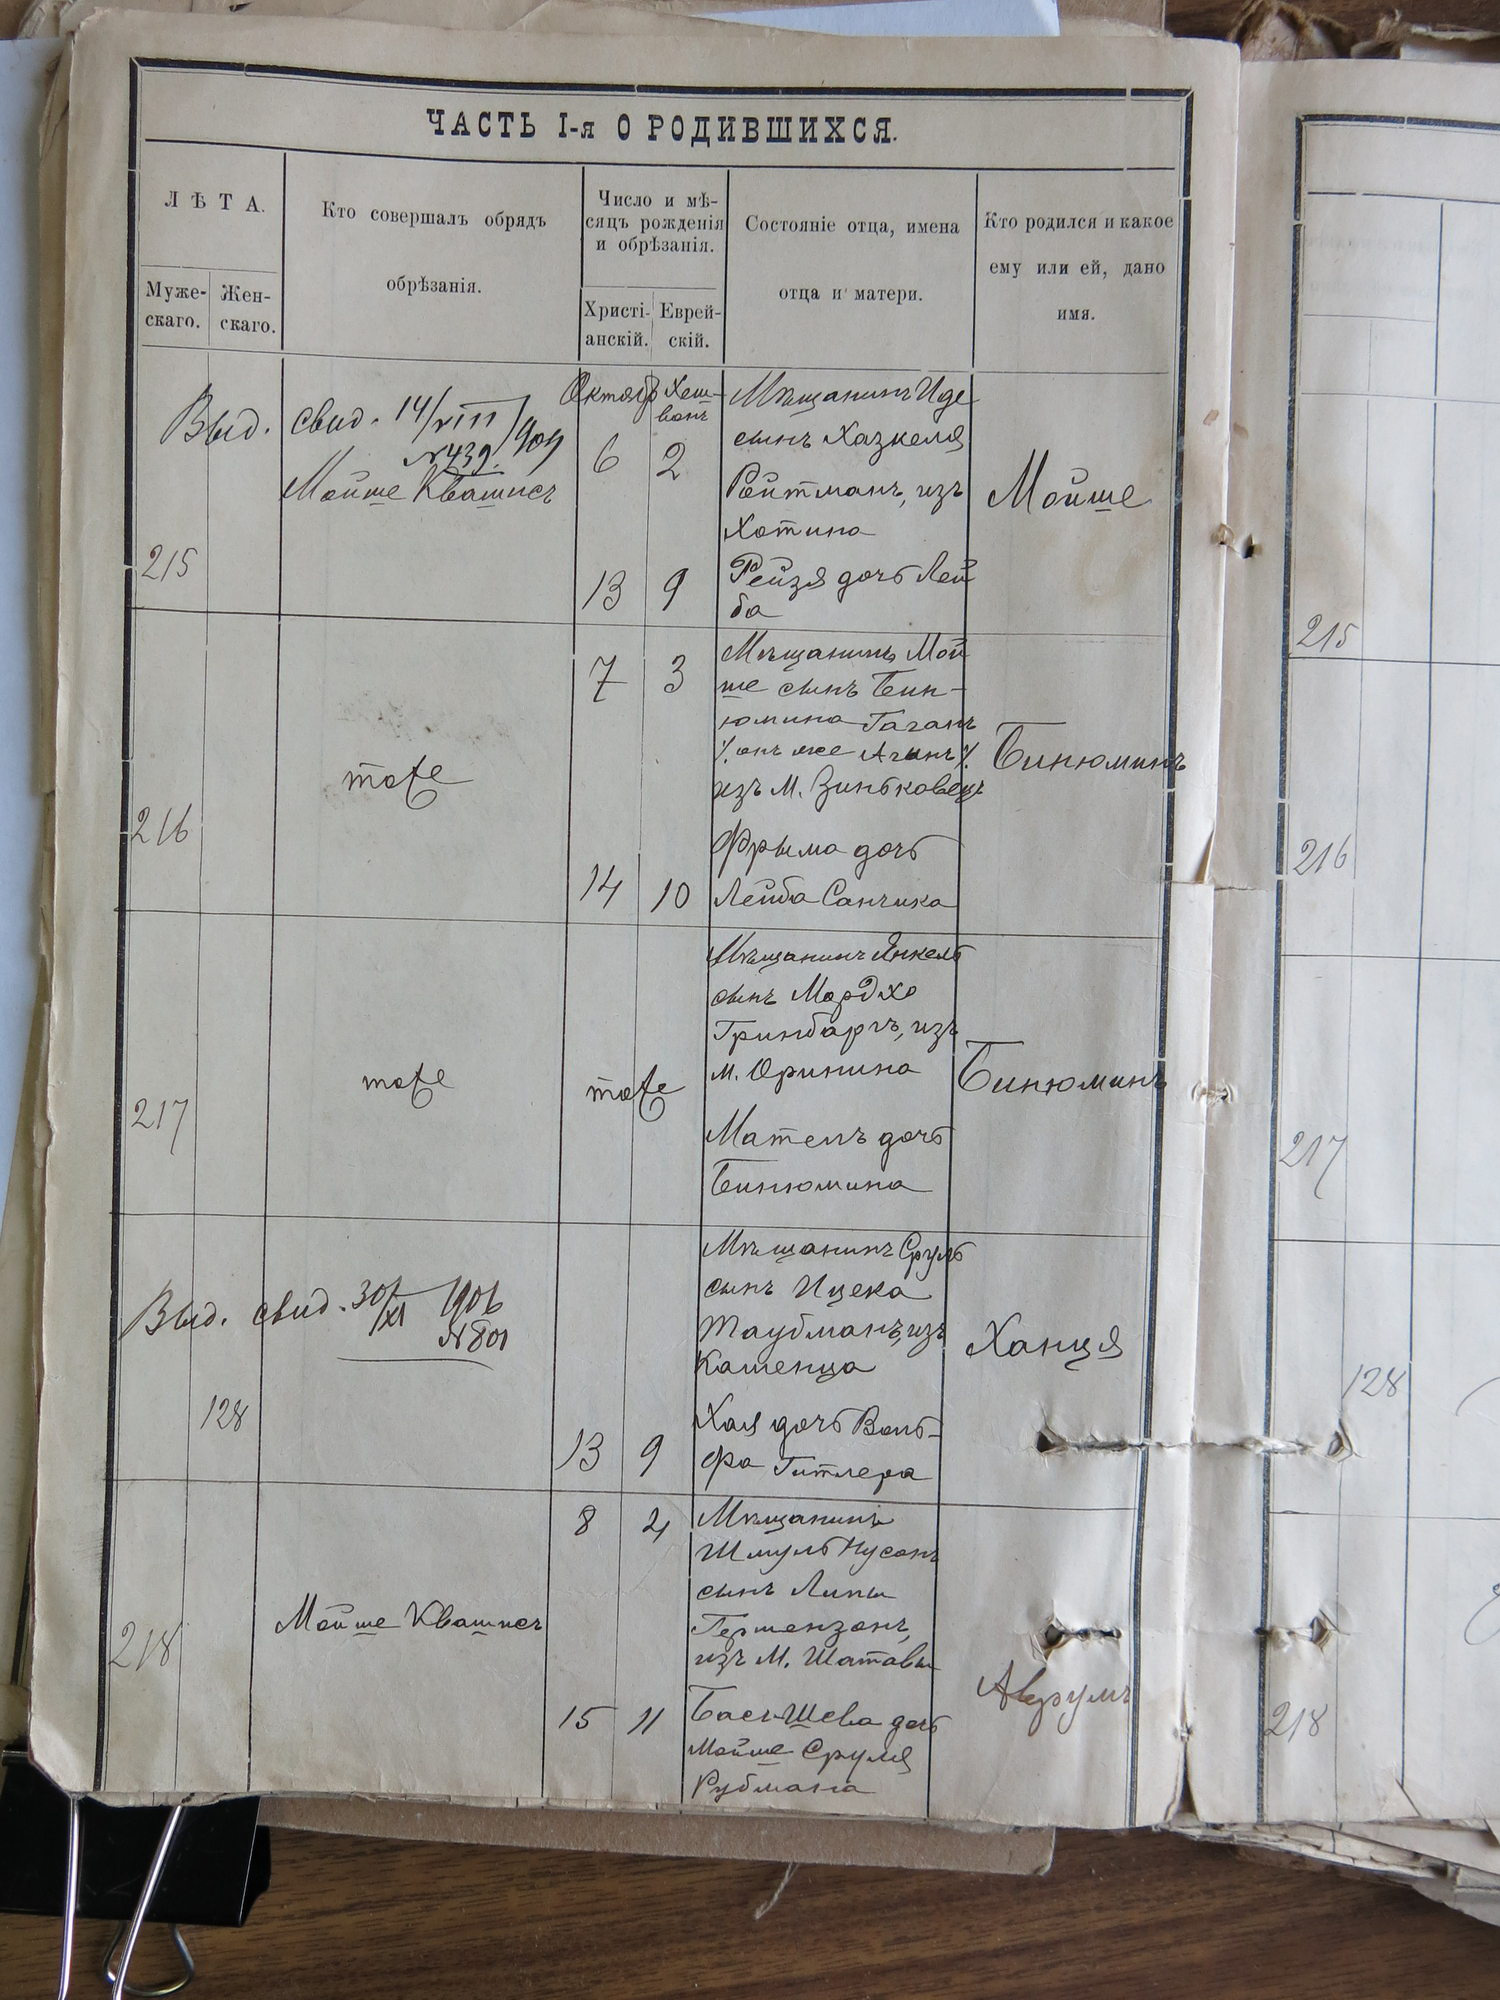 ЧАСТЬ I-я О РОДИВШИХСЯ.
ЛѢТА.
Муже-
скаго.
Жен-
скаго.
Кто совершалъ обрядъ
обрѣзанія.
Число и мѣ-
сяцъ рожденія
и обрѣзанія.
Христі-
анскій.
Еврей-
скій.
Состояніе отца, имена
отца и матери.
Кто родился и какое
ему или ей, дано
имя.
215
Выд. свид. 14/VIII/909
№439.
Мойше Квашисъ
Октябр
6
13
Хеш-
ванъ
2
9
Мѣщанинъ Иде
сынъ Хазкеля
Ройтманъ, изъ
Хотина
Рейзя дочь Лей
ба
Мойше
216
тоже
7
14
3
10
Мѣщанинъ Мой
ше сынъ Бин-
юмина Гаганъ
%.онъ же Аганъ%.
изъ м. Зиньковецъ
Фрыма дочь
Лейба Санчика
Бинюминъ
217
тоже
тоже
Мѣщанинъ Янкель
сынъ Мордхо
Гринбаргъ, изъ
м. Оринина
Мателъ дочь
Бинюмина
Бинюминъ
128
Выд. свид. 30/XI 1906
№801
13
9
Мѣщанинъ Сруль
сынъ Ицека
Таубманъ, изъ
Каменца
Хая дочь Воль-
фа Гитлера
Ханця
218
Мойше Квашисъ
8
15
4
11
Мѣщанинъ
Шмуль Нусонъ
сынъ Липы
Гершензонъ,
изъ м. Шатавы
Бася-Шева дочь
Мойше Сруля
Рубмана
Аврумъ
215
216
217
128
218